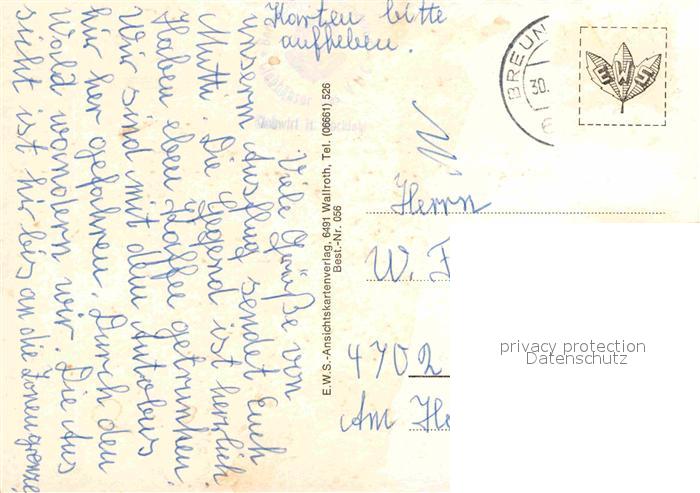 Karten bitte
aufheben.
Viele Grüße von
unserm Ausflug sendet Euch
Mutti. Die Gegend ist herrlich
Haben eben Kaffee getrunken.
Wir sind mit dem Autobus
hir her gefahren. Durch den
Wald wandern wir. Die Aus
sicht ist hir bis an die Zonengrenze.
E.W.S.-Ansichtskartenverlag, 6491 Wallroth, Tel. (06661) 526
Best.-Nr. 056
BREUN
30.
6
EWS
Herrn
W. F
4702
Am He
privacy protection
Datenschutz